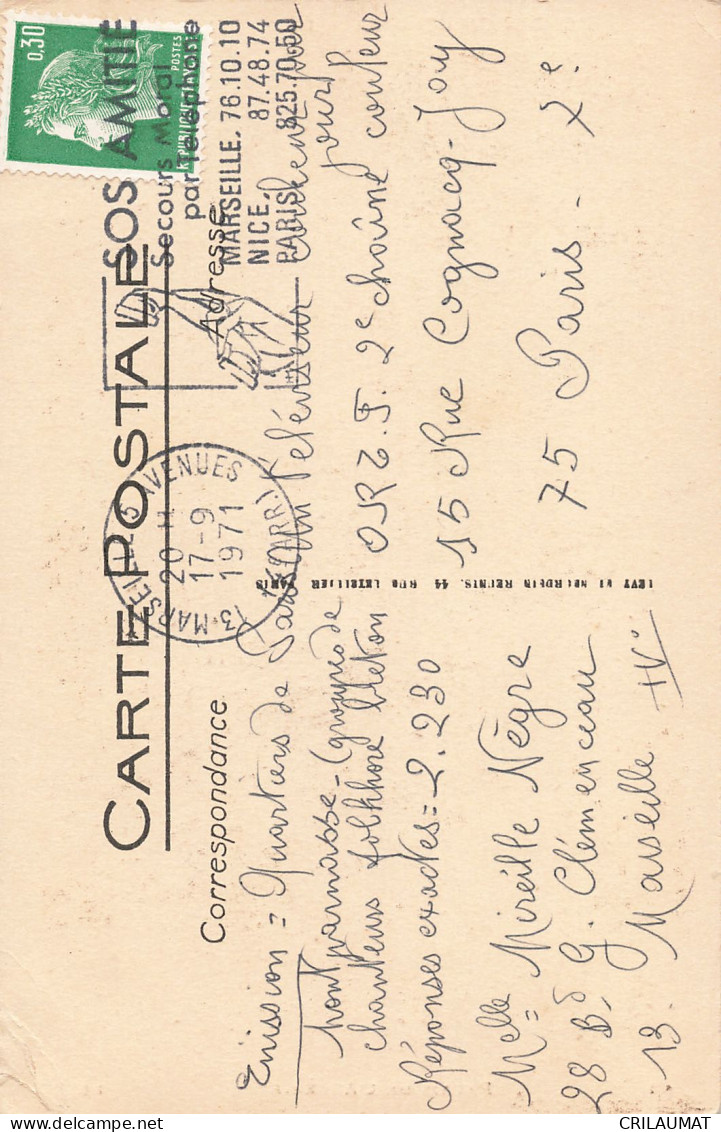 CARTE POSTALE
Correspondance
Adresse
0,30
POSTES
REPUBLIQUE FRANÇAISE
SOS AMITIE
Secours Moral
par telephone
MARSEILLE. 76.10.10
NICE. 87.48.74
PARIS. 825.70.50
13 MARSEILLE-5 AVENUES
20 H
17-9
1971
Emission = Quartiers de Paris
Montparnasse - (groupes de
chanteurs folkhore breton
Réponses exactes = 2.230
Melle = Mireille Nègre
28 Bd G. Clémenceau
13. Marseille IV°
LEVY ET NEURDEIN REUNIS. 44 RUE LETELLIER PARIS
Un téléviseur couleur par jour
ORTF. 2e chaîne couleur
15 Rue Cognacq-Jay
75 Paris - 7e.
CRILAUMAT